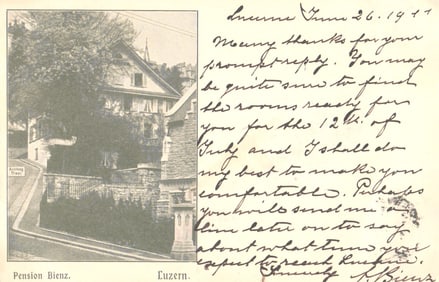 Lucerne June 26. 1911
Many thanks for your
prompt reply. You may
be quite sure to find
the rooms ready for
you for the 12th. of
July and I shall do
my best to make you
comfortable. Perhaps
you will send me a
line later on to say
about what time you
expect to reach Lucerne.
Sincerely Bienz
Pension Bienz. Luzern.